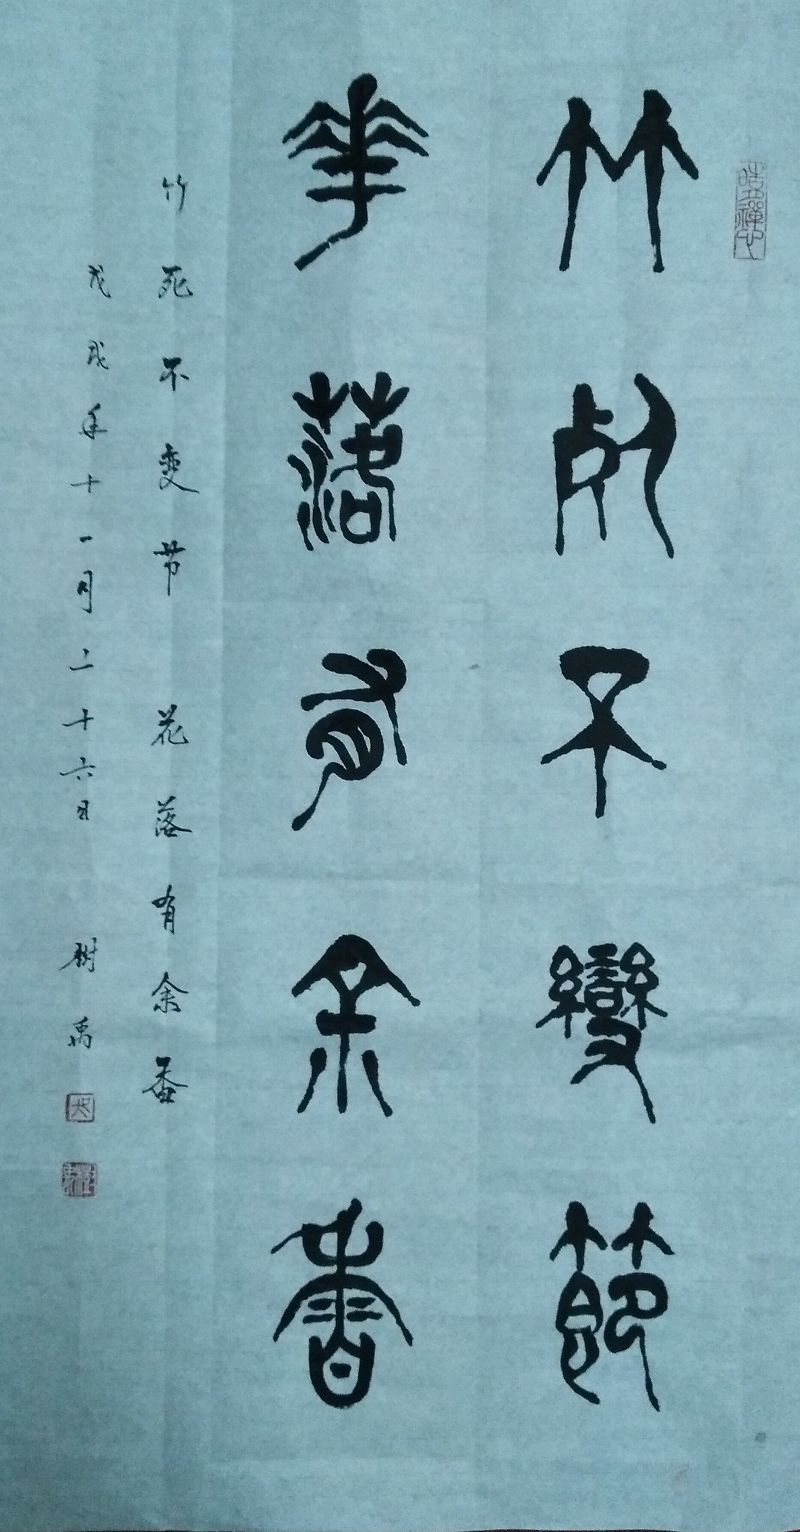 竹死不變節
華落有余香
竹死不变节 花落有余香
戊戌年十一月二十六日 树禹